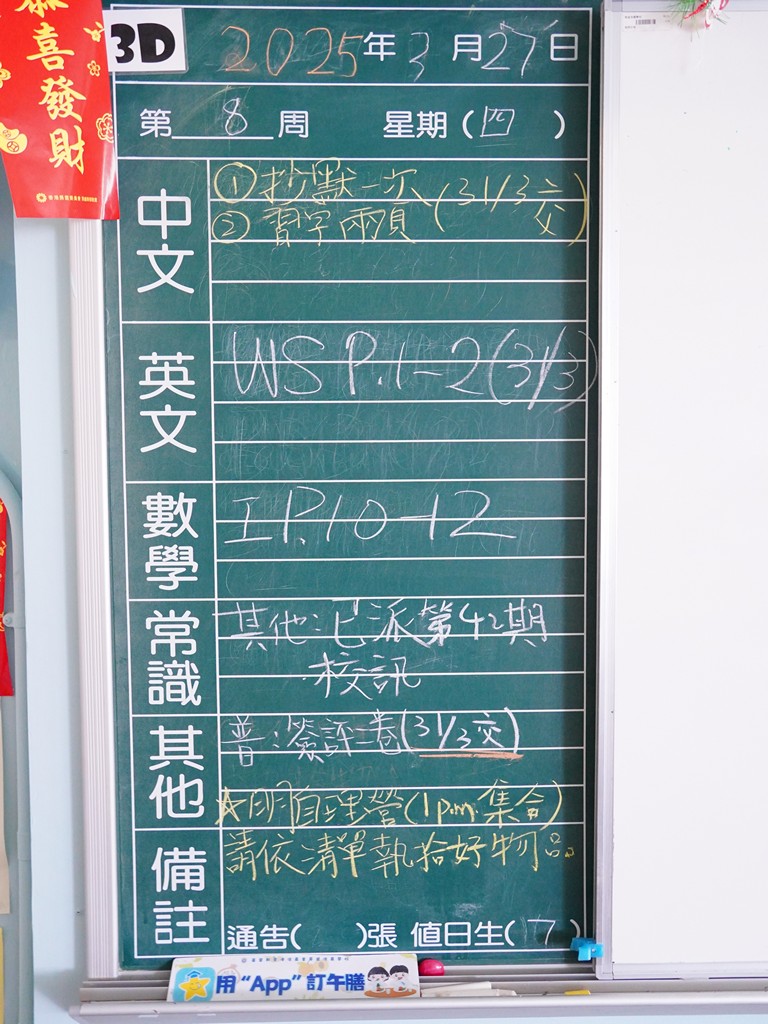 恭喜發財
3D
2025年3月27日
第 8 周 星期(四)
中文
①抄默一次
②習字兩頁
(31/3交)
英文
WS P.1-2(31/3)
數學
工P.10-12
常識
其他:已派第42期
校訊
其他
普:簽評卷(31/3交)
☆明自理營(1p.m.集合)
備註
請依清單執拾好物品。
通告( )張 值日生(7)
用“App”訂午膳